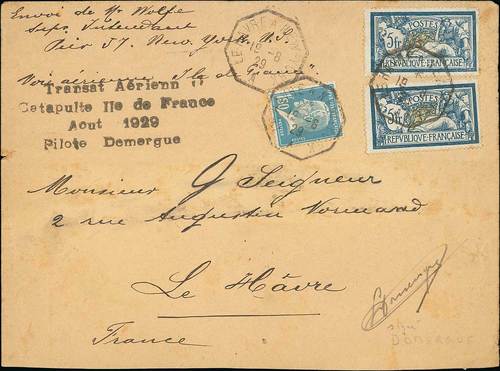 Envoi de Mr Wolfe
Supt. Intendant
Pier 57. New York. U.S.
Voie aérienne "Ile de France"
Transat Aérienn
Catapulte Ile de France
Aout 1929
Pilote Demergue
LE HAVRE A NEW YORK
18 -8
29
POSTES
5fr
REPUBLIQUE FRANÇAISE
POSTES
5fr
REPUBLIQUE FRANÇAISE
1F50
Monsieur G Seigneur
2 rue Augustin Normand
Le Hâvre
France
Demergue
DEMERGUE